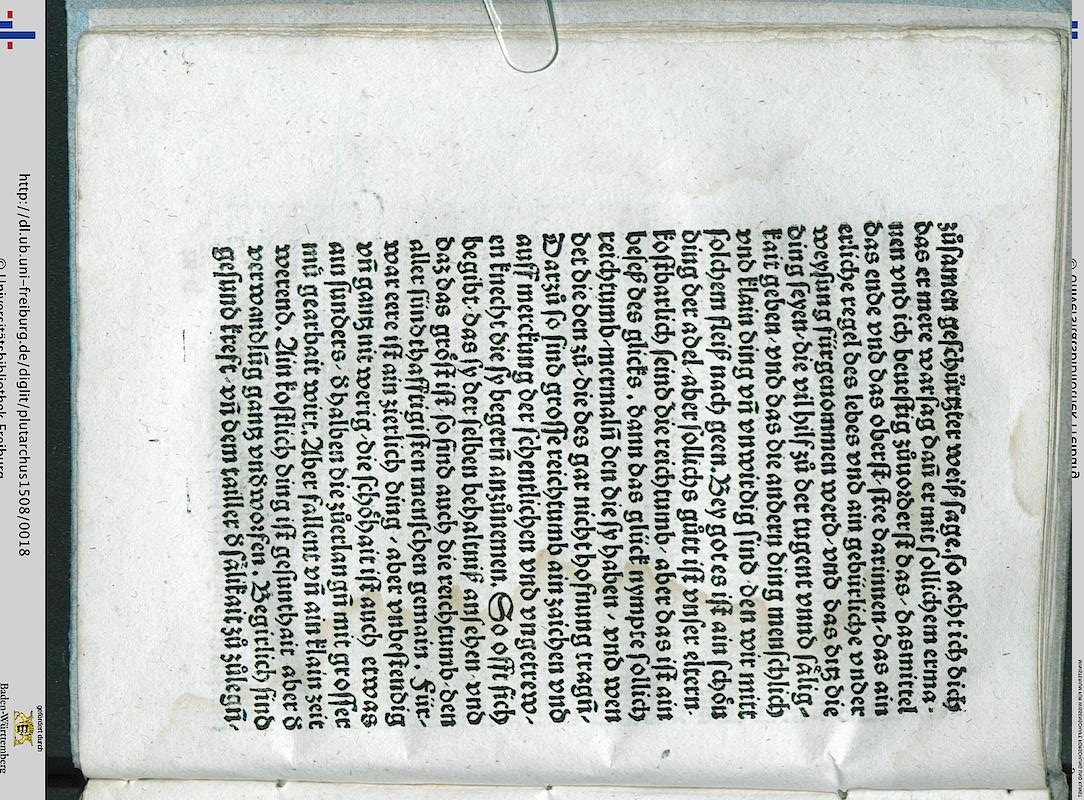 zůsamen geschürtzter weiß sage. so acht ich dich
das er mere warsag dañ er mit sollichem erma-
nen vnd ich beuestig zůuorderst das, das mittel
das ende vnd das oberst, stee darinnen, das ain
erliche regel des lebẽs vnd ain gebürliche vnder
weysung fürgenommen werd, vnd das ditz die
ding seyen, die vil hilf zů der tugent vnnd sälig-
kait geben, vnd das die andern ding menschlich
vnd klain ding vñ vnwirdig sind, den wir mitt
solchem fleiß nach geen. Bey got es ist ain schön
ding der adel, aber sollichs gůtt ist vnser eltern.
kostbarlich seind die reichtumb, aber das ist ain
beseß des glicks. dann das glück nympts sollich
reichtumb, mermaln den die sy haben, vnd wen
det die den zů, die des gar nicht hofnung tragñ,
Darzů so sind grosse reichtumb ain zaichen vnd
auff merckung der schemlichen vnd vngetrew-
en knecht die sy begern anzůnemen. So offt sich
begibt, das sy der selben behaltniß ansehen, vnd
daz das gröst ist so sind auch die reichtumb den
aller sündthafftigisten menschen gemain. Für-
war eere ist ain zierlich ding, aber vnbestendig
vñ gantz nit werig, die schöhait ist auch etwas
ain sunders, dhalben die zůerlangñ mit grosser
mü gearbait wirt. Aber fallent vñ ain klain zeit
werend. Ain kostlich ding ist gesunthait aber d
verwandlũg gantz vndworfen. Begirlich sind
gesund kreft, vñ dem tailler d sältkait zů zůlegñ,
http://dl.ub.uni-freiburg.de/diglit/plutarchus1508/0018
© Universitätsbibliothek Freiburg
gefördert durch
Baden-Württemberg